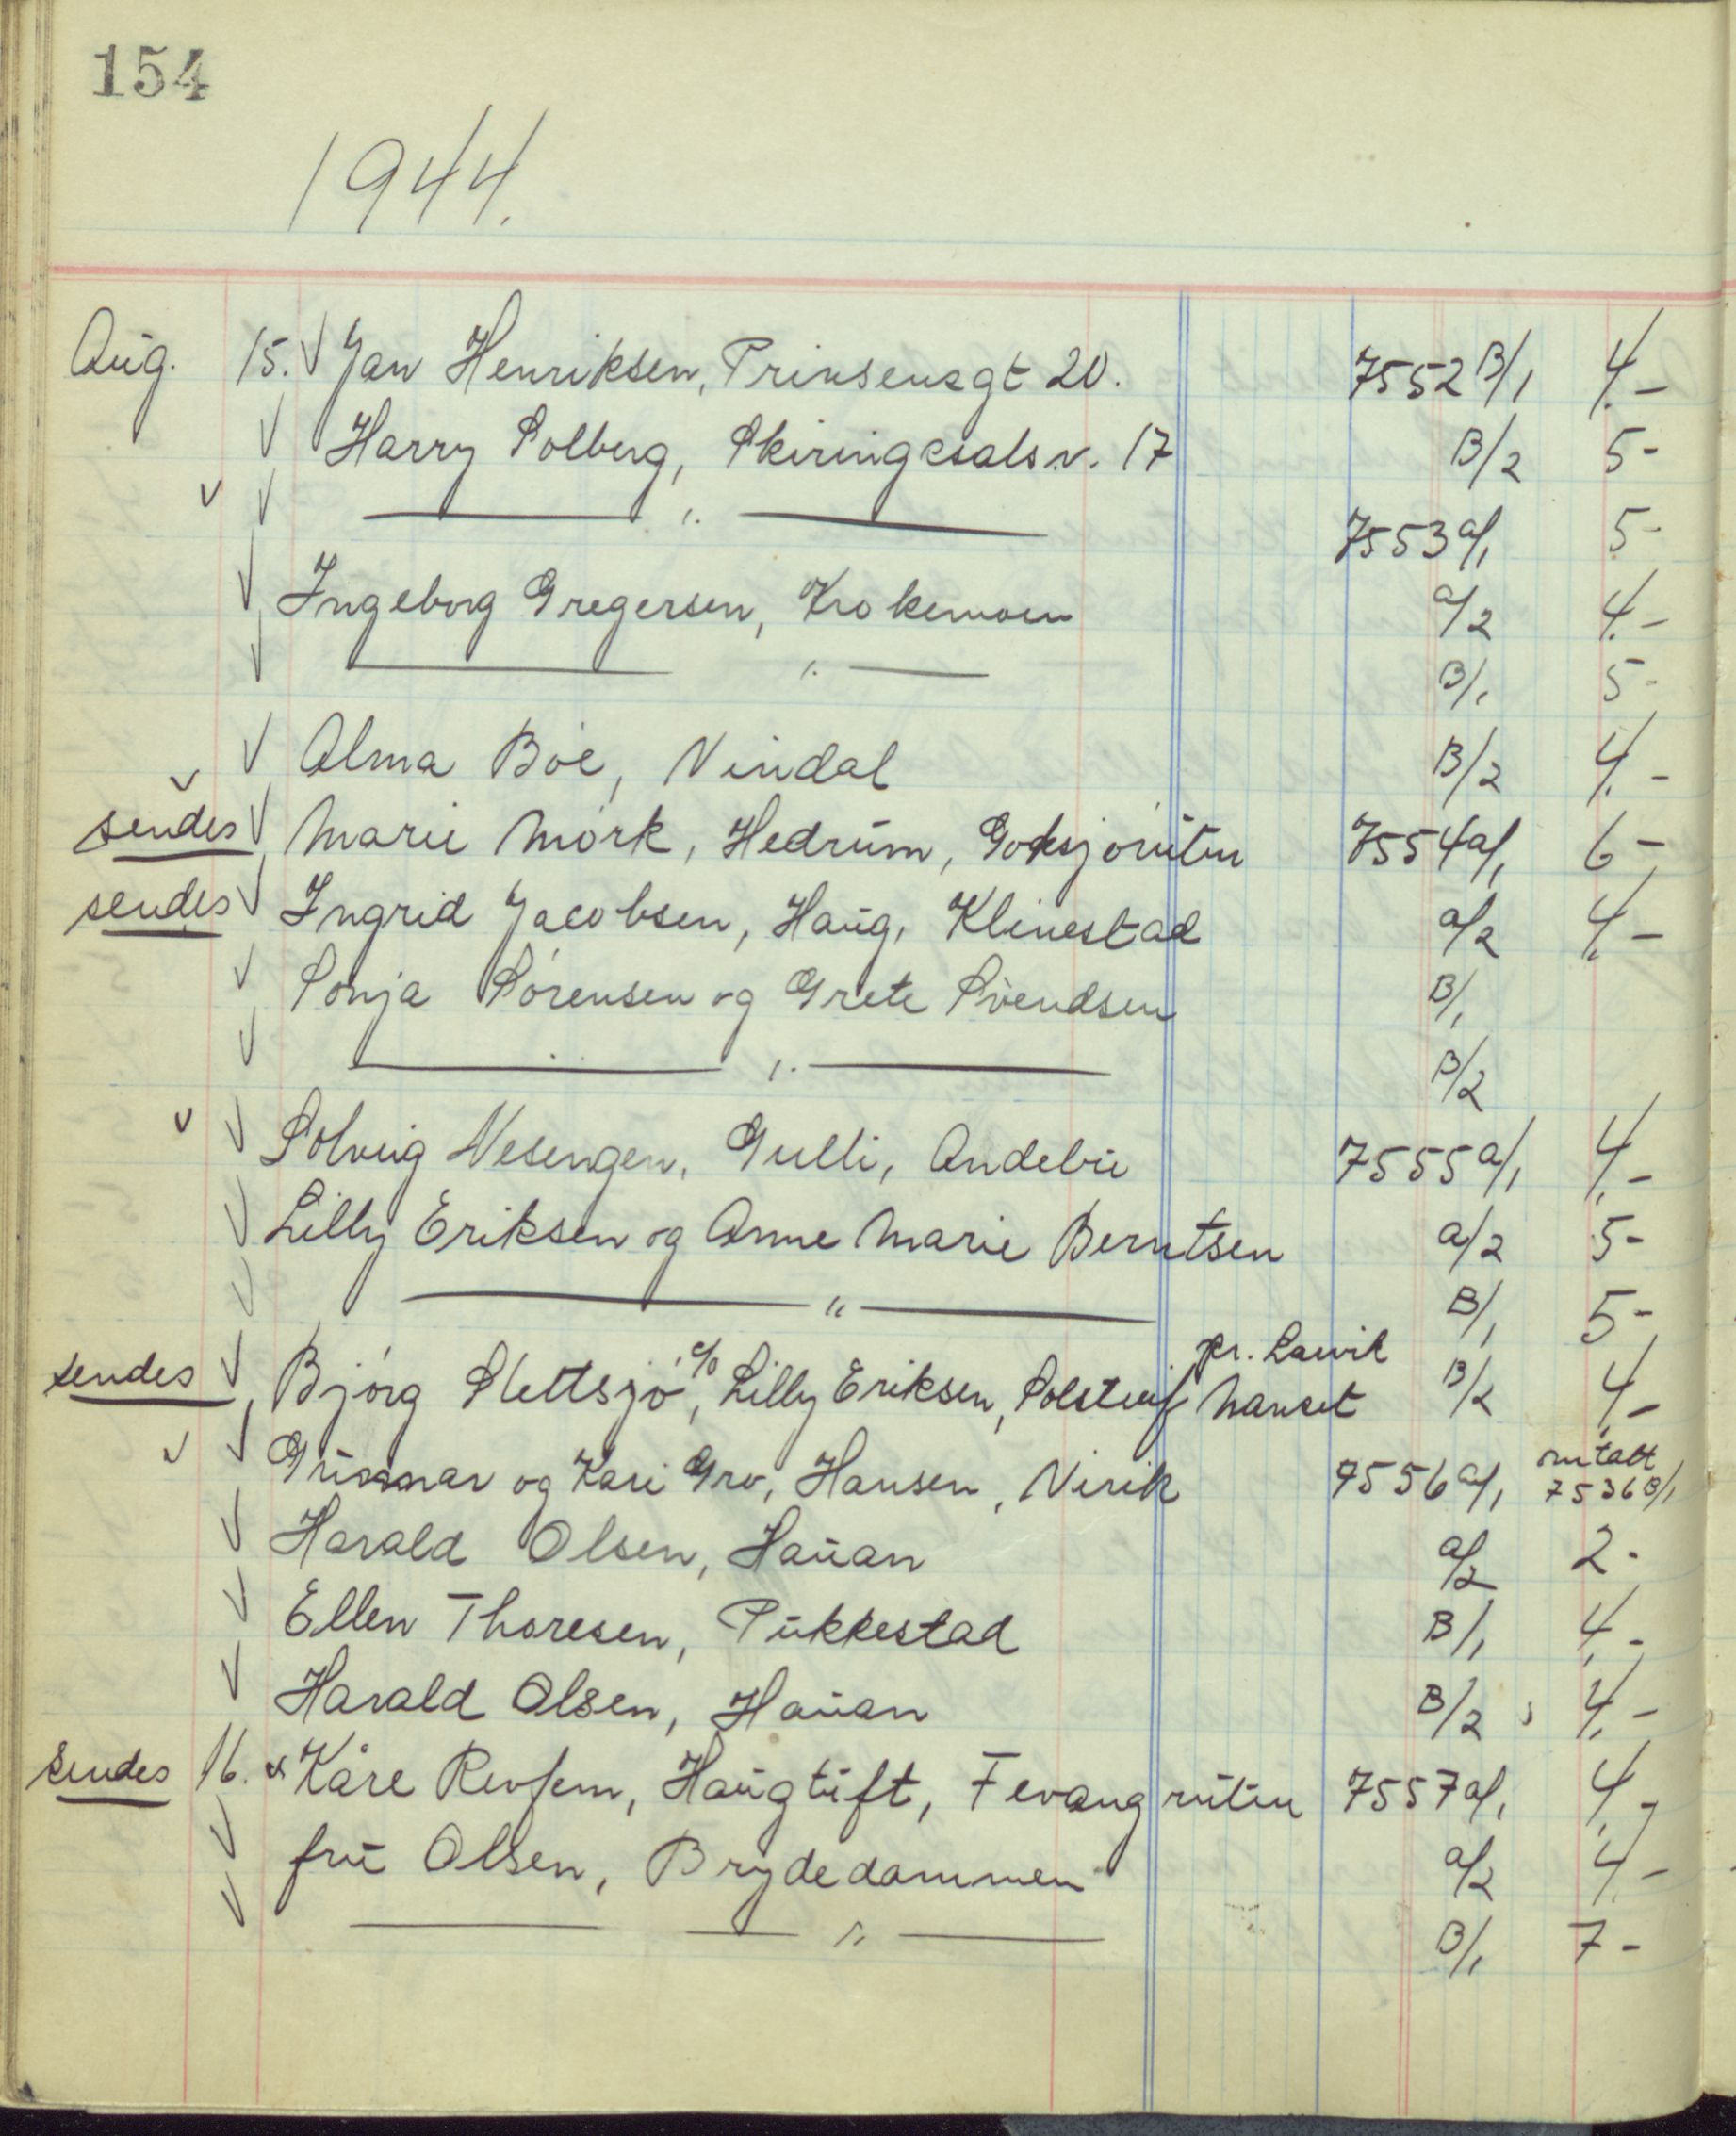 154
1944.
Aug. 15. √ Jan Henriksen, Prinsensgt 20. 7552 B/1 4.-
√ Harry Solberg, Skiringssalsv. 17 B/2 5-
v √ —— " —— 7553 a/1 5-
√ Ingeborg Gregersen, Krokemoen a/2 4.-
√ —— " —— B/1 5-
√ Alma Bøe, Vindal B/2 4.-
v
sendes √ Marie Mørk, Hedrum, Goksjøruten 7554 a/1 6-
sendes √ Ingrid Jacobsen, Haug, Klinestad a/2 4.-
√ Sonja Sørensen og Grete Svendsen B/1
√ —— " —— B/2
v √ Solveig Vesengen, Gulli, Andebu 7555 a/1 4.-
√ Lilly Eriksen og Anne Marie Berntsen a/2 5-
√ —— " —— B/1 5-
pr. Larvik
sendes √ Bjørg Slettsjø, c/o Lilly Eriksen, Nanset B/2 4.-
v √ Gunnar og Kari Gro, Hansen, Virik 7556 a/1 omtatt 7536 B/1
√ Harald Olsen, Hauan a/2 2-
√ Ellen Thoresen, Pukkestad B/1 4.-
√ Harald Olsen, Hauan B/2 4.-
sendes 16. √ Kåre Revfem, Haugtuft, Fevangruten 7557 a/1 4.-
√ fru Olsen, Brydedammen a/2 4.-
√ —— " —— B/1 7-